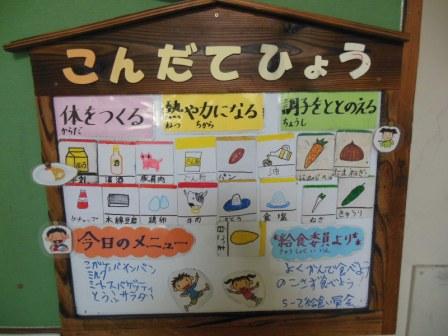 こんだてひょう
体をつくる
からだ
熱や力になる
ねつ ちから
調子をととのえる
ちょうし
牛乳
清酒
豚肩肉
パン
油
にんじん
たまねぎ
ケチャップ
木綿豆腐
鶏卵
牛肉
さとう
食塩
ねぎ
きゅうり
今日のメニュー
給食委員より
こがたパインパン
ミルク
ミートスパゲッティ
とうふサラダ
よくかんで食べよう
のこさず食べよう!